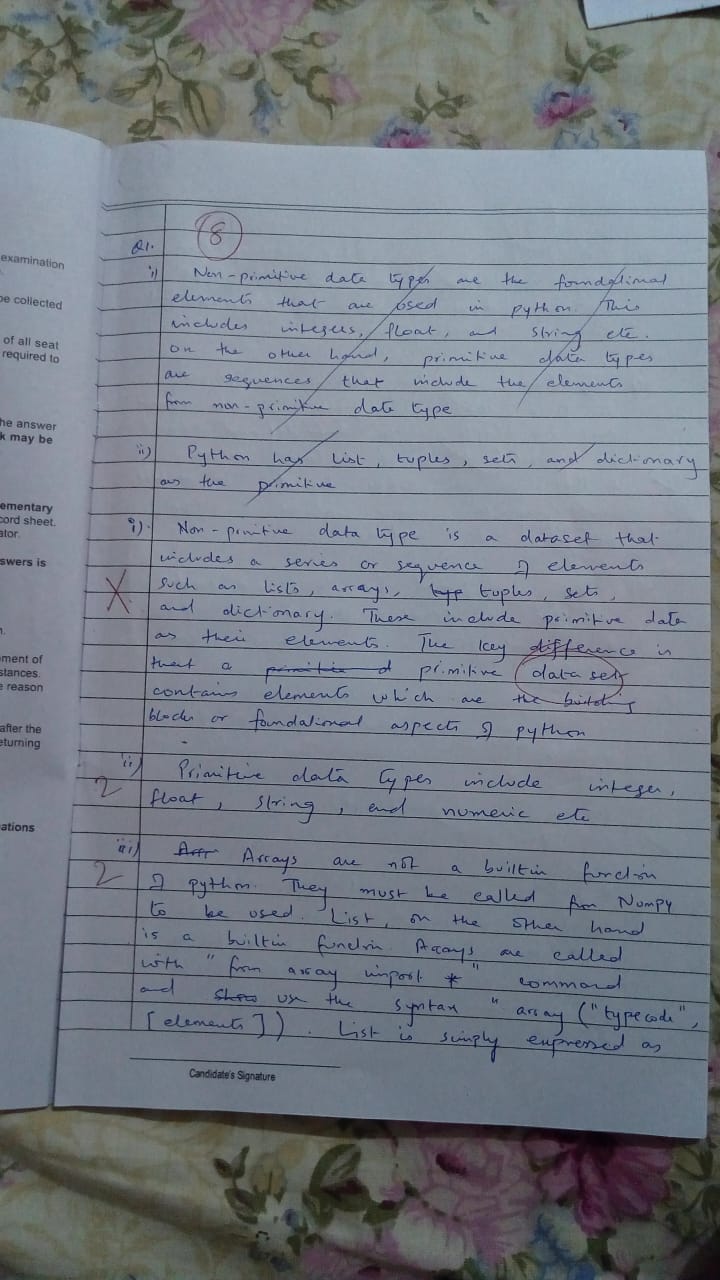 examination
be collected
of all seat
required to
he answer
k may be
ementary
cord sheet.
ator.
swers is
ment of
stances.
e reason
after the
eturning
ations
8
Q1.
i) Non-primitive data types are the foundational
elements that are used in python. This
includes integers, float, and string etc.
on the other hand, primitive data types
are sequences that include the elements
from non-primitive data type
ii) Python has list, tuples, sets, and dictionary
as the primitive
i). Non-primitive data type is a dataset that
includes a series or sequence of elements
such as lists, arrays, typ tuples, sets,
X
and dictionary. These include primitive data
as their elements. The key difference is
that a primitive d primitive data sets
contains elements which are the building
blocks or foundational aspects of python
ii) Primitive data types include integer,
2 float, string, and numeric etc
iii) Arr Arrays are not a builtin function
2 of python. They must be called from NumPy
to be used. List, on the other hand
is a builtin function. Arrays are called
with "from array import *" command
and use the syntax "array ("typecode",
[elements]). List is simply expressed as
Candidate's Signature